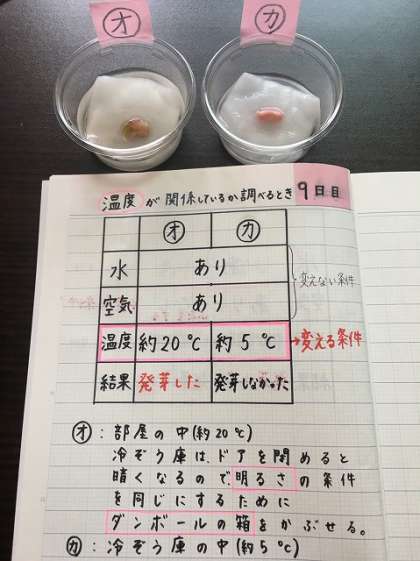 オ カ
温度が関係しているか調べるとき 9日目
オ カ
水 あり
空気 あり
変えない条件
温度 約20℃ 約5℃ →変える条件
結果 発芽した 発芽しなかった
オ：部屋の中(約20℃)
冷ぞう庫は、ドアを閉めると
暗くなるので明るさの条件
を同じにするために
ダンボールの箱をかぶせる。
カ：冷ぞう庫の中(約5℃)